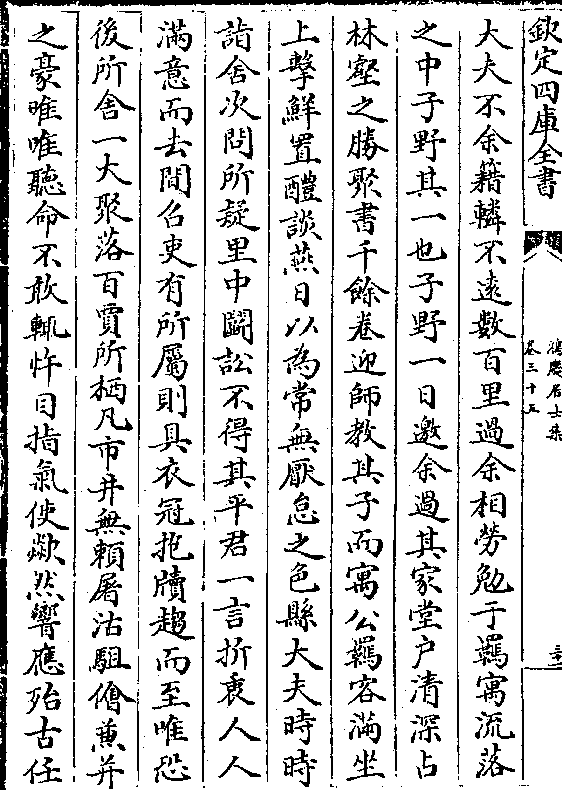 欽定四庫全書
鴻慶居士集
卷三十五
大夫不余籍轔不遠數百里過余相勞勉于羈寓流落
之中子野其一也子野一日邀余過其家堂户清深占
林壑之勝聚書千餘卷迎師教其子而寓公羈客滿坐
上擊鮮置醴談燕日以為常無厭怠之色縣大夫時時
詣舍次問所疑里中鬬訟不得其平君一言折衷人人
滿意而去間名吏有所屬則具衣冠抱牘趨而至唯恐
後所舍一大聚落百賈所栖凡市井無頼屠沽駔儈兼并
之豪唯唯聽命不敢輒忤目指氣使歘然響應殆古任